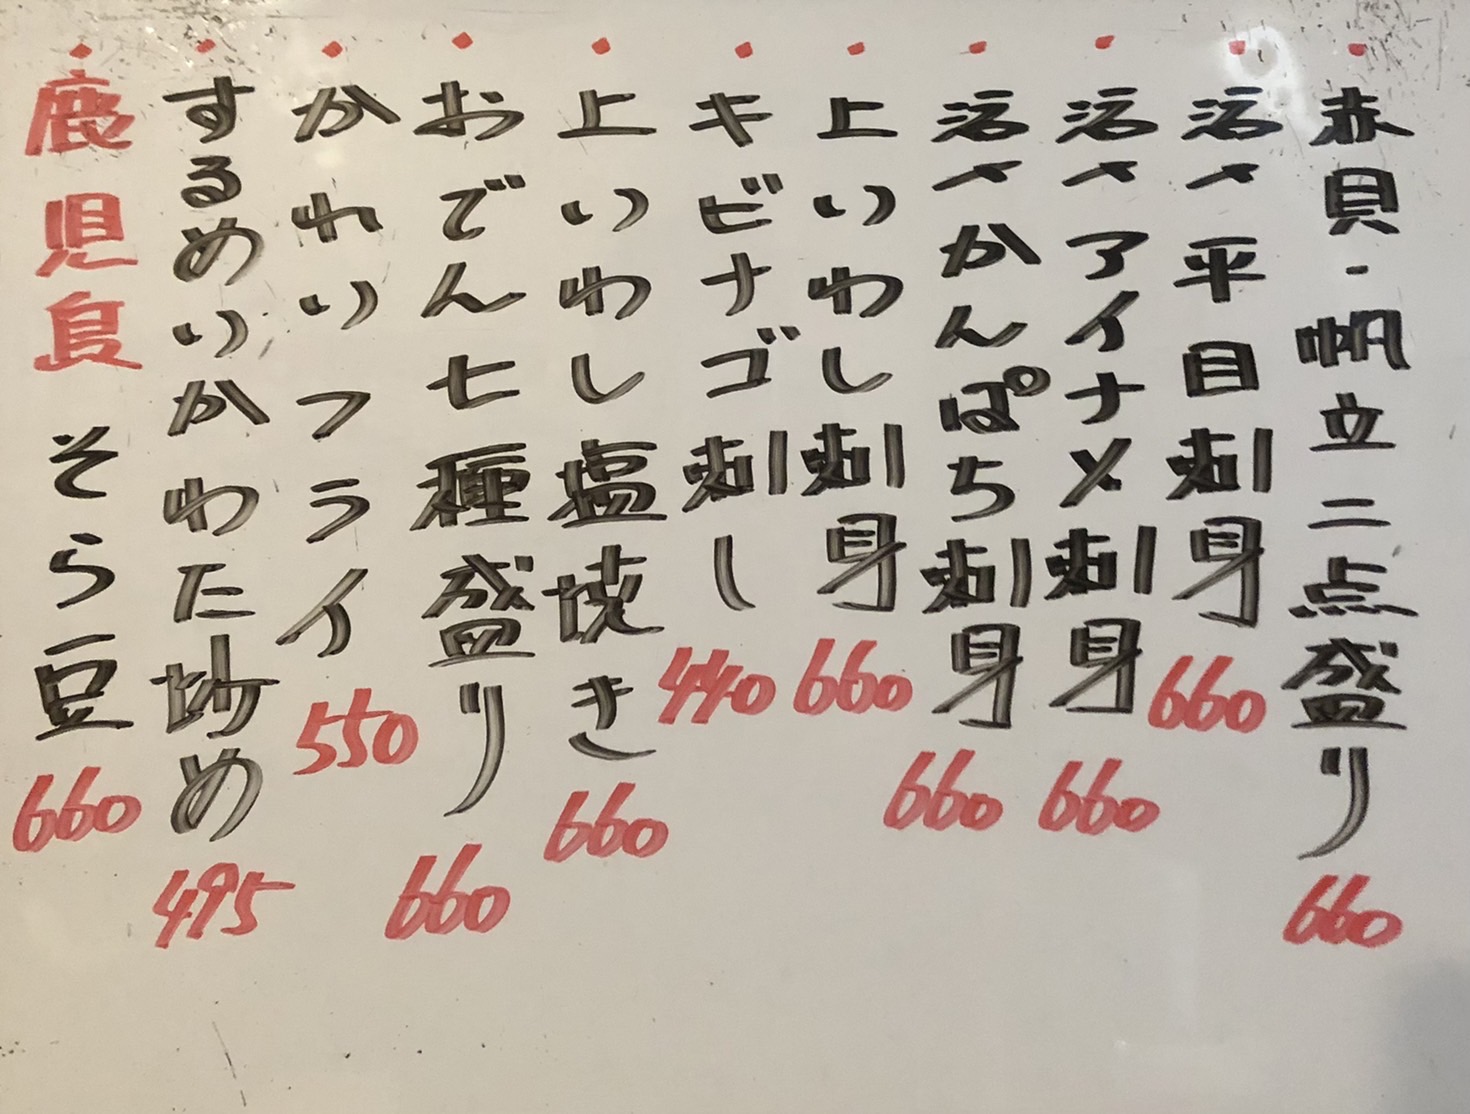 ・赤貝・帆立二点盛り 660
・活〆平目刺身 660
・活〆アイナメ刺身 660
・活〆かんぱち刺身 660
・上いわし刺身 660
・キビナゴ刺し 440
・上いわし塩焼き 660
・おでん七種盛り 660
・かれいフライ 550
・するめいかわた炒め 495
・鹿児島 そら豆 660